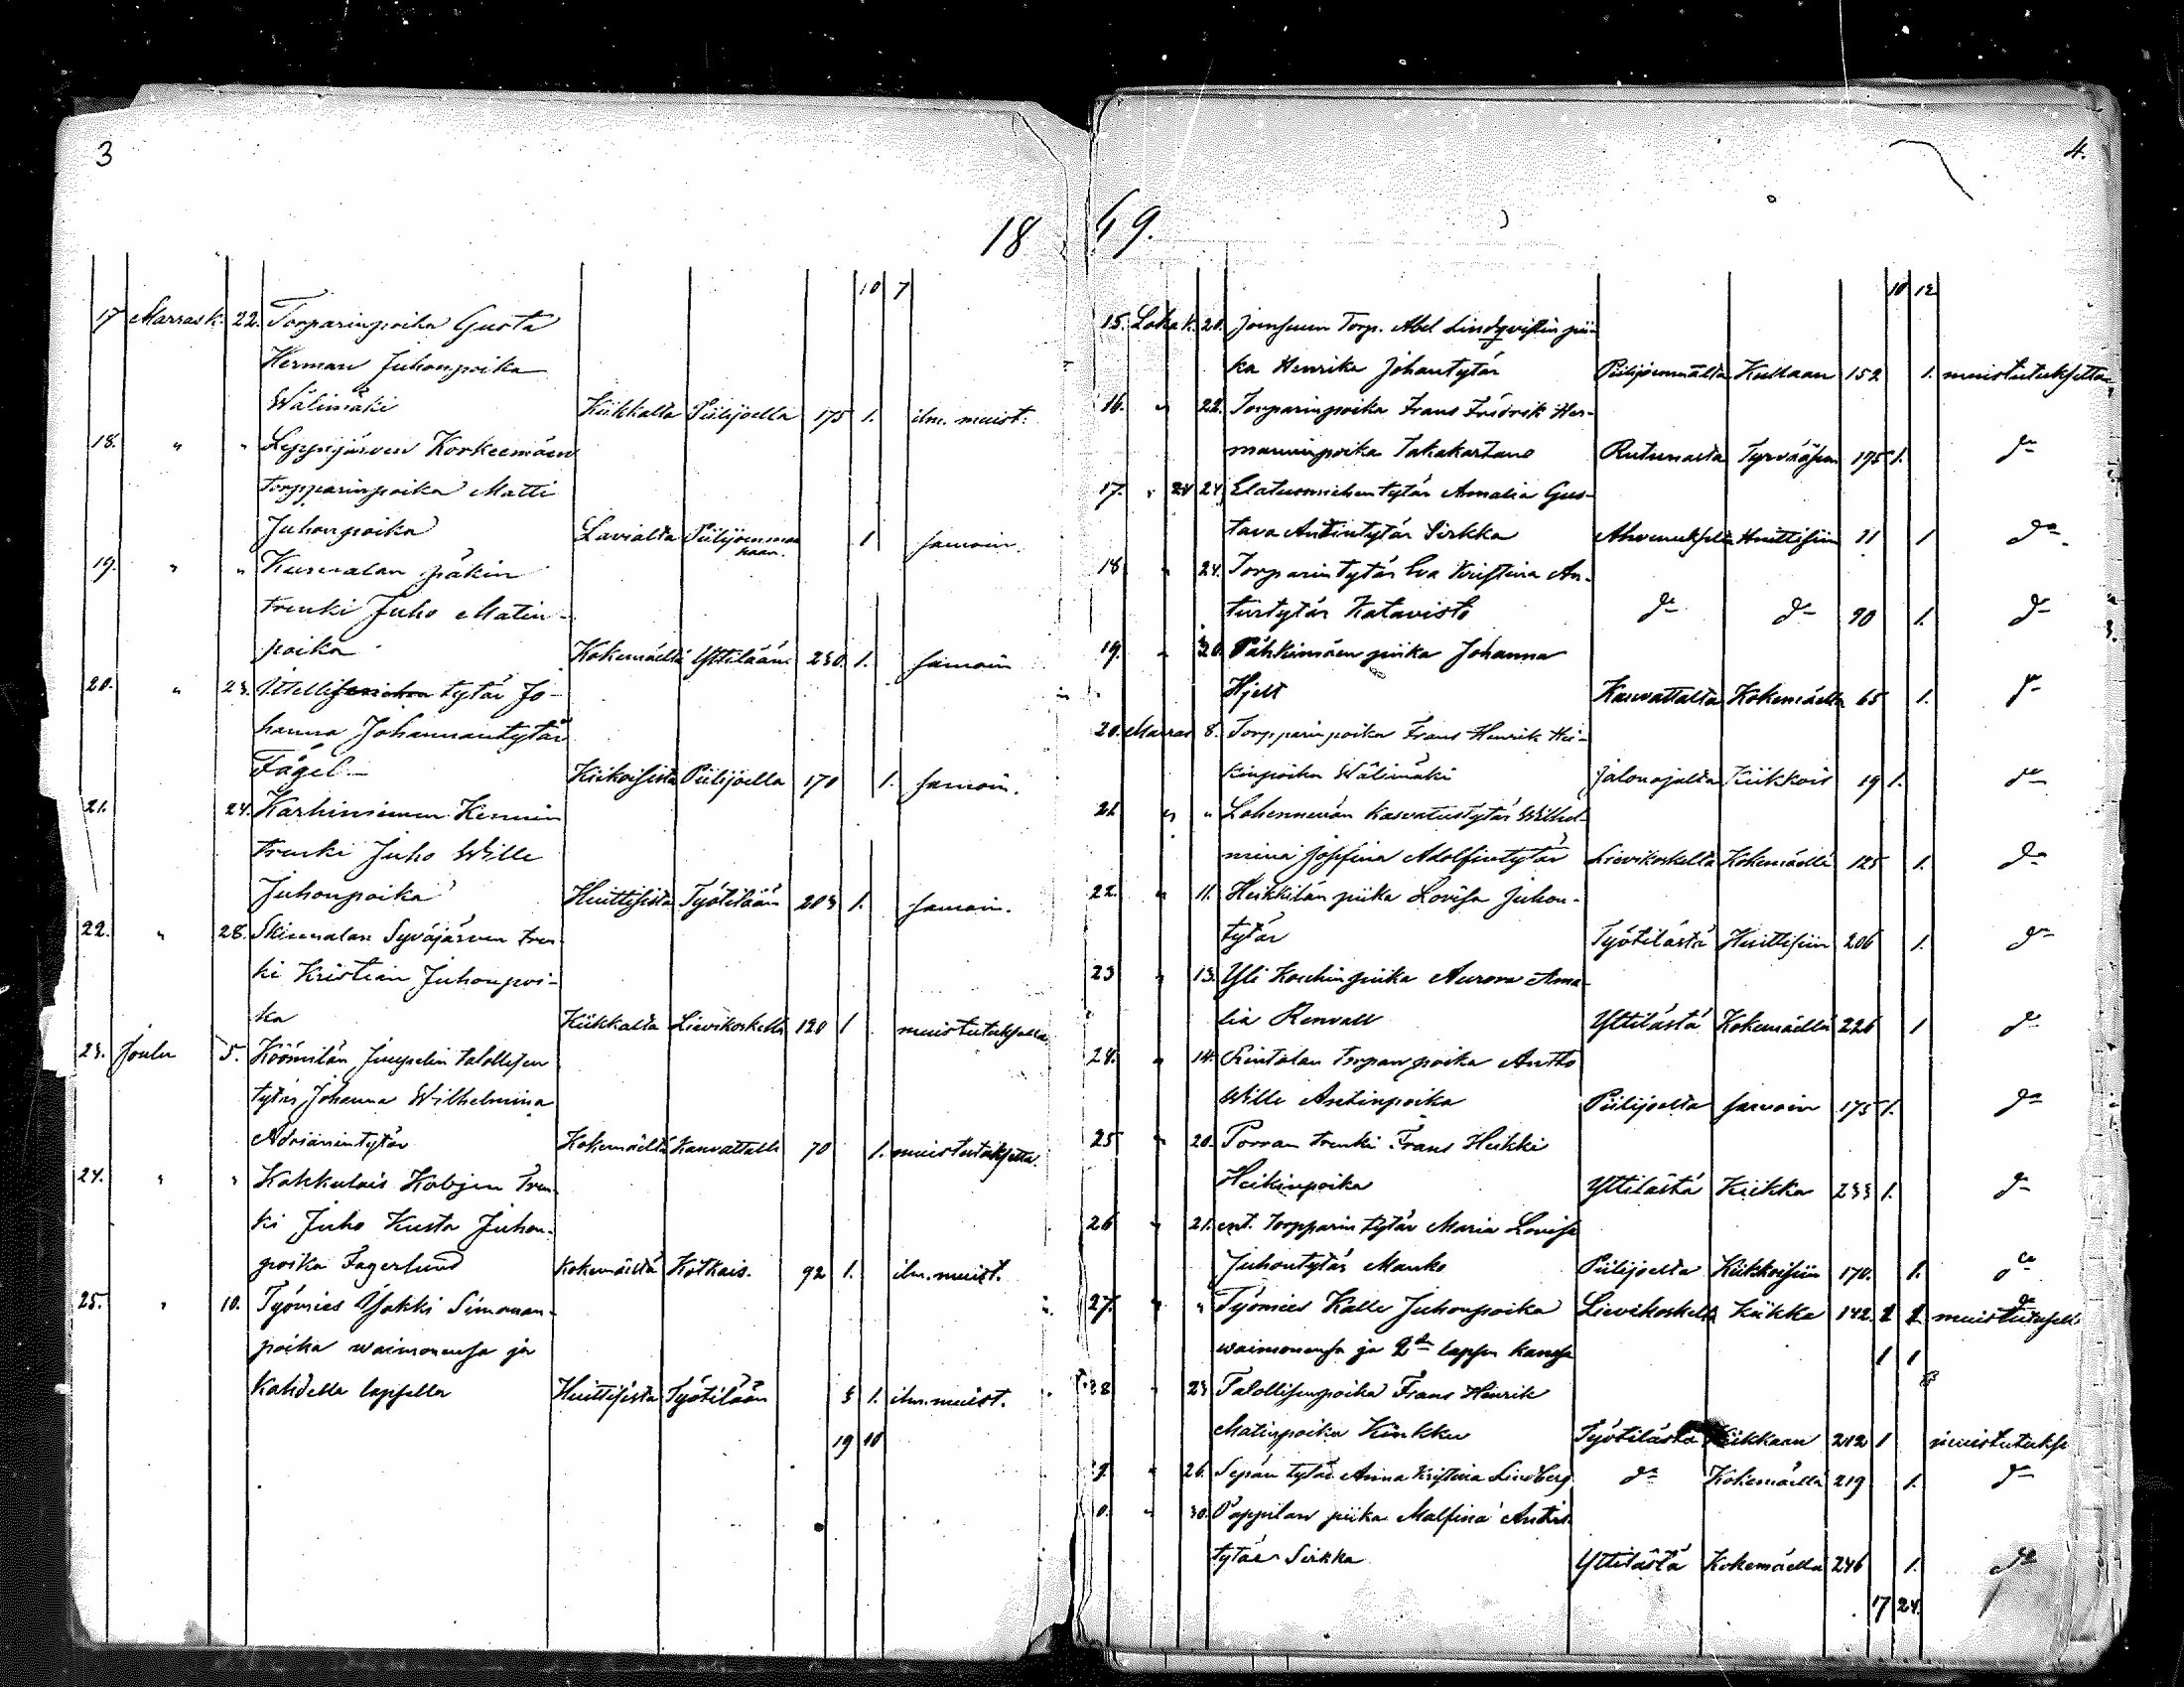 3
18
10 7
17 Marrask. 22. Torparinpoika Gusta
Herman Juhonpoika
Wälimäki Kiikkalta Piilijoella 175 1. ilm. muist.
18. " " Leppijärven Korkeemäen
torpparinpoika Matti
Juhonpoika Lavialta Piilijoenmaahaan. 1 samoin.
19. " "
trenki Juho Matin-
poika Kokemäeltä Yttilään 230. 1. samoin
20. " 23. tytär Jo-
hanna Johannantytär
Fågel Kiikoisista Piilijoella 170 1. samoin.
21. 24. Karhiniemen
trenki Juho Wille
Juhonpoika Huittisista Työtilään 203 1. samoin.
22. " 28. Skinnalan Syväjärven tren-
ki Kristian Juhonpoi-
ka Kiikkalta Lievikoskella 120 1 muistutuksella
23. Joulu 5. Köömilän talollisen
tytär Johanna Wilhelmina
Adriänintytär Kokemäeltä Kauvattalle 70 1. muistutuksetta.
24. " " Kakkulais tren-
ki Juho Kusta Juhon-
poika Fagerlund Kokemäeltä Kotkais. 92 1. ilm. muist.
25. " 10. Työmies Simonan-
poika waimonensa ja
Kahdella lapsella Huittisista Työtilään 3 1. ilm. muist.
19 10
4.
69.
10 12
15. Lokak. 20. Torp. Abel Lindqvistin pii-
ka Henrika Johantytär Piilijoenmaalta Kullaan 152 1. muistutuksetta
16. " 22. Torparinpoika Frans Fredrik Her-
manninpoika Takakartano Rutunalta Tyrvääseen 195 1. do
17. " 24 24. tytär Amalia Gus-
tava Antintytär Sirkka Huittisiin 11 1 do
18 " 24. Torparintytär Eva Kristina An-
tintytär Katavisto do do 90 1. do
19. " 20. Pähkimäen piika Johanna
Hjelt Kauvattalta Kokemäelle 65 1. do
20. Marras 8. Torpparinpoika Frans Henrik Hei-
kinpoika Wälimäki Jalonojalta Kiikkois 19 1. do
21 " " Kasvatustytär Wilhel-
mina Josefina Adolfintytär Lievikoskelta Kokemäelle 125 1. do
22. " 11. Heikkilän piika Lovisa Juhon-
tytär Työtilästä Huittisiin 206 1. do
23 " 13. Yli piika Aurora Ama-
lia Renvall Yttilästä Kokemäellä 226 1 do
24. " 14. Rintalan torpan poika Antto
Wille Antinpoika Piilijoelta samoin 175 1. do
25 " 20. Porran trenki Frans Heikki
Heikinpoika Yttilästä Kiikka 233 1. do
26 " 21. ent. torpparin tytär Maria Lovisa
Juhontytär Piilijoelta Kiikkoisiin 170. 1. do
27. " " Työmies Kalle Juhonpoika Lievikoskelta Kiikka 142. 1 1
waimonensa ja 2 lapsen kanssa 1 1
28 " 23 Talollisenpoika Frans Henrik
Matinpoika Kinkku Työtilästä Kiikkaan 212 1 muistutukse
9. " 26. Sepän tytär Anna Kristina Lindberg do Kokemäellä 219 1. do
0. " 30. Pappilan piika Malfina Antin
tytär Sirkka Yttilästä Kokemäellä 246 1. do
17 24.